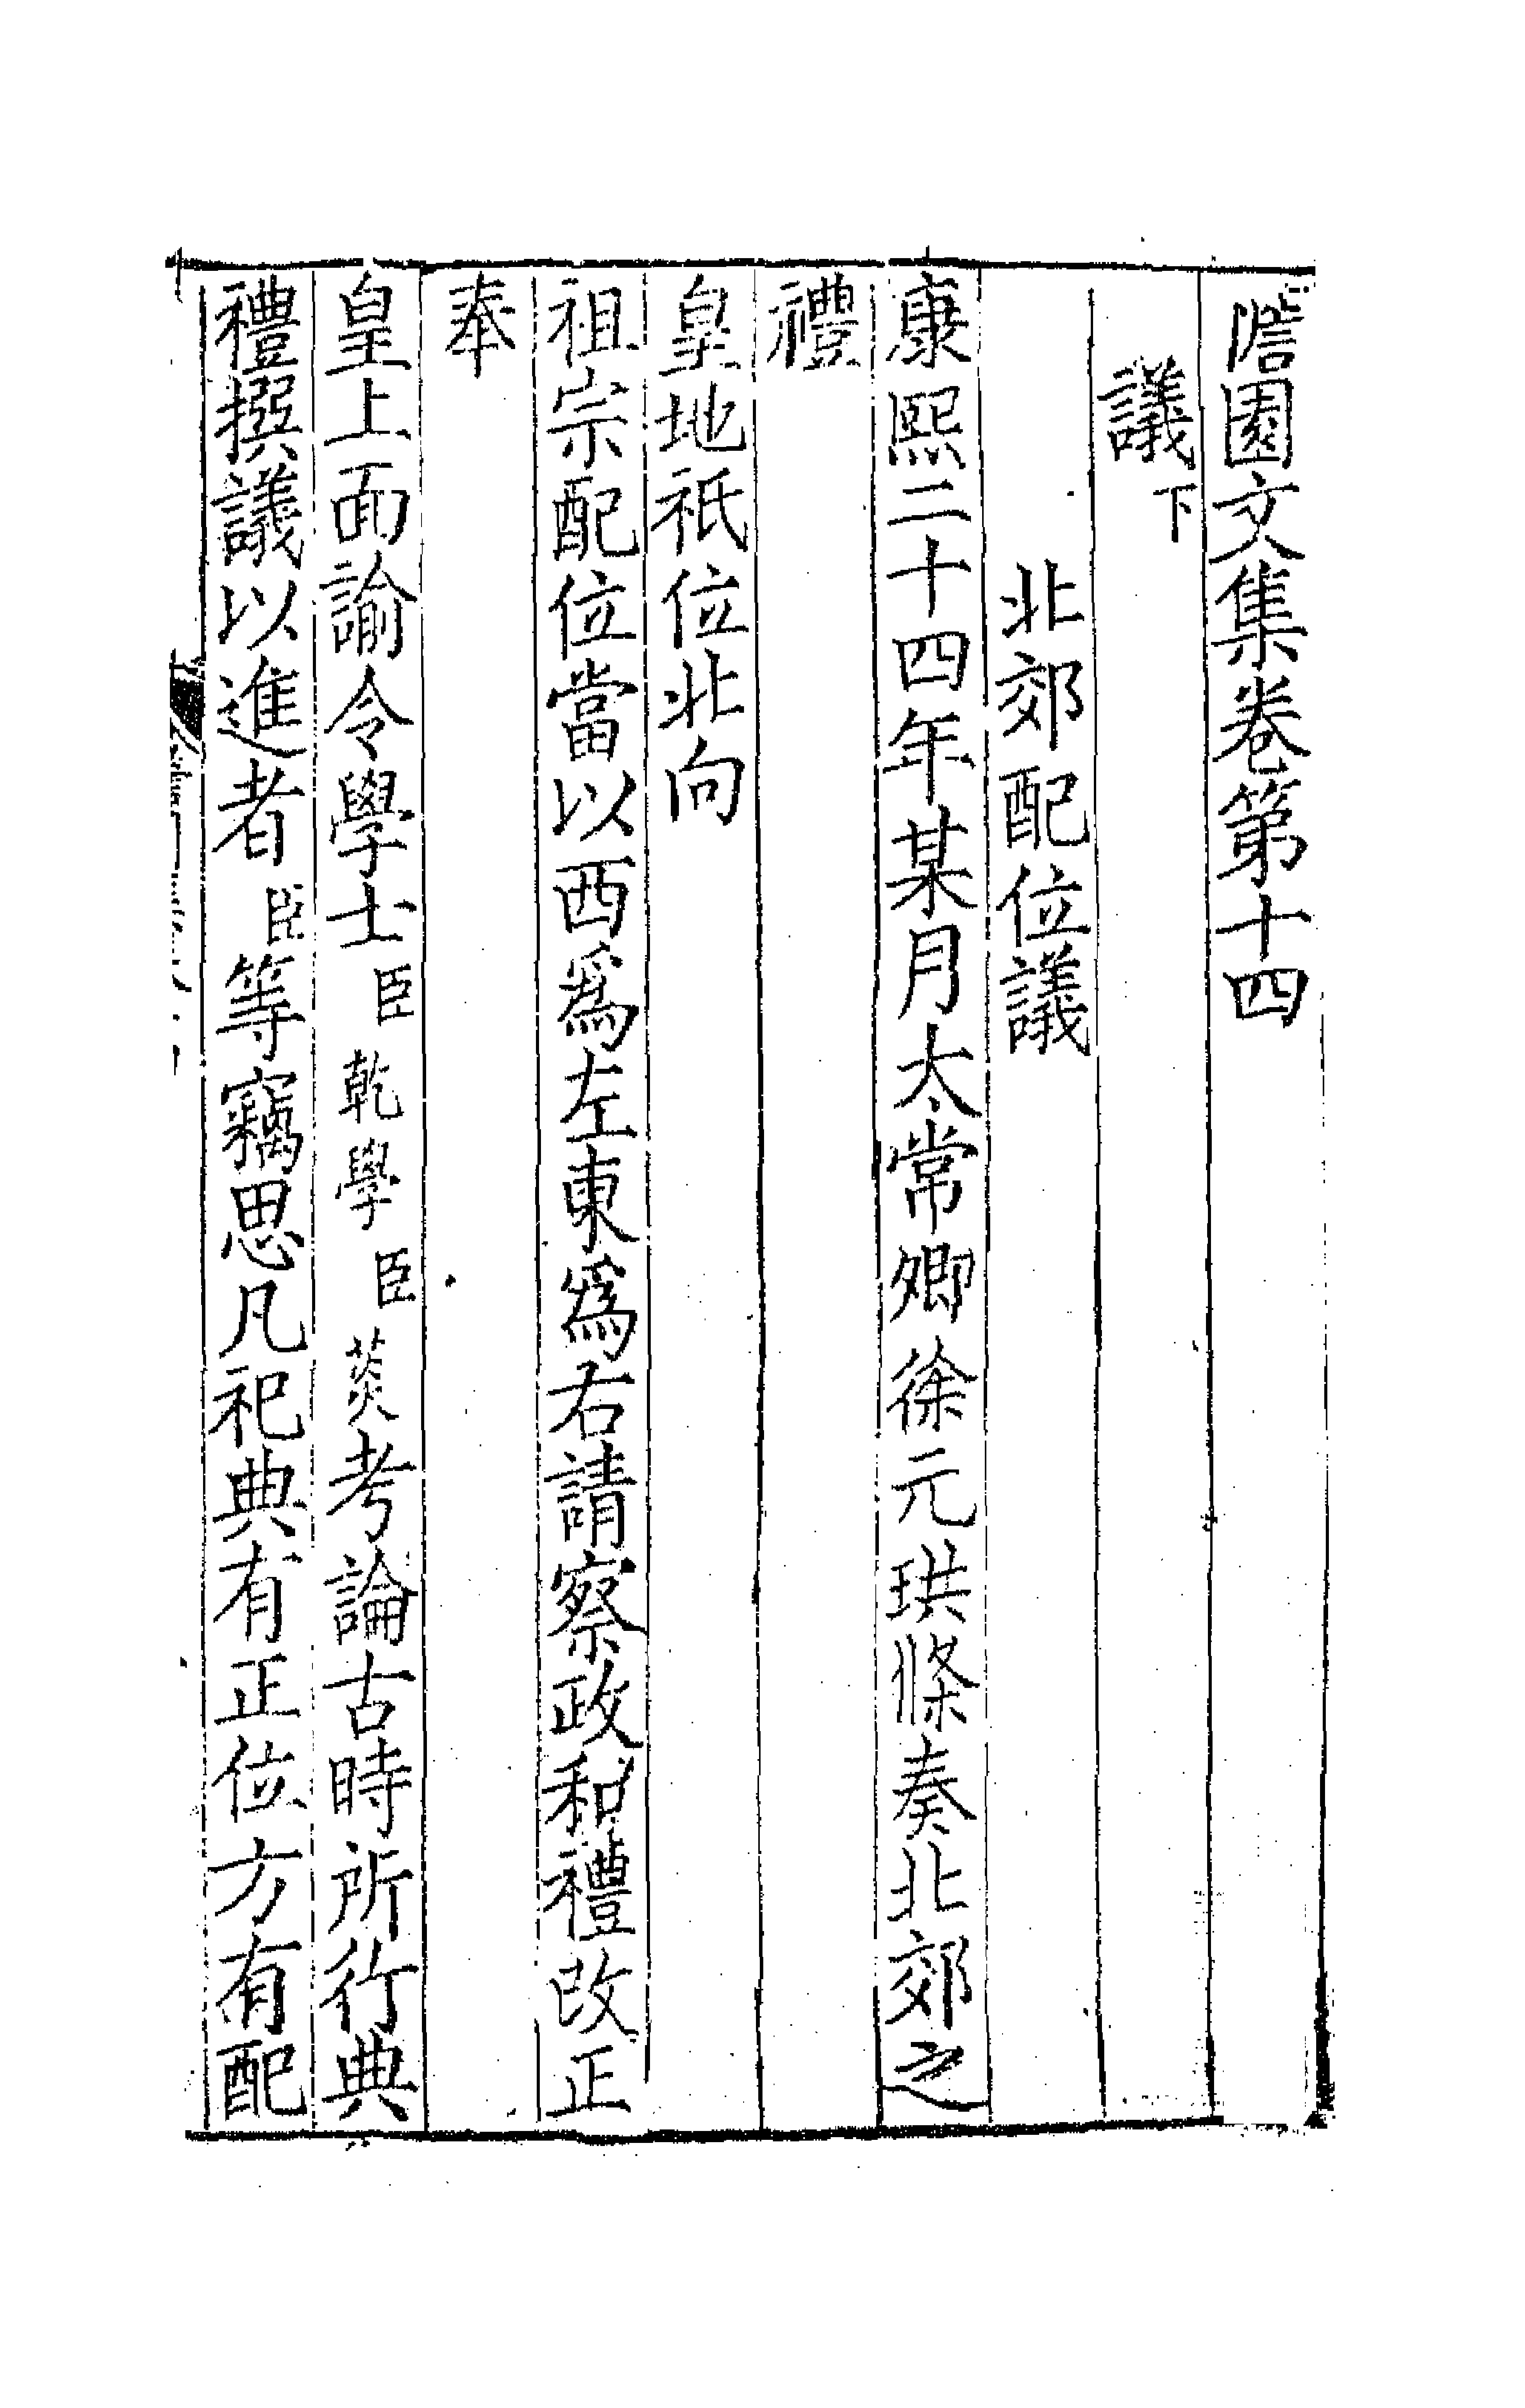 憺園文集卷第十四
議下
北郊配位議
康熙二十四年某月太常卿徐元珙條奏北郊之
禮
皇地祇位北向
祖宗配位當以西爲左東爲右請察政和禮改正
奉
皇上面諭令學士臣乾學臣菼考論古時所行典
禮撰議以進者臣等竊思凡祀典有正位方有配